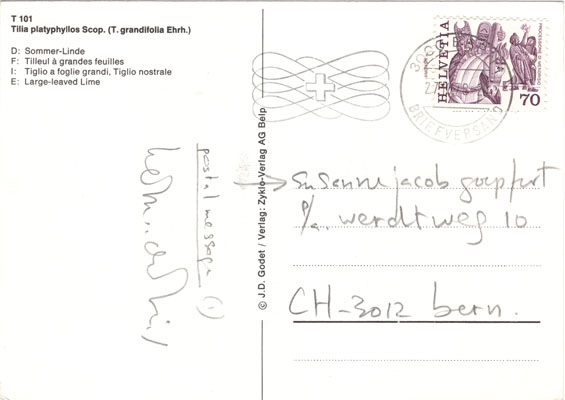 T 101
Tilia platyphyllos Scop. (T. grandifolia Ehrh.)
D: Sommer-Linde
F: Tilleul à grandes feuilles
I: Tiglio a foglie grandi, Tiglio nostrale
E: Large-leaved Lime
postal message (1)
© J.D. Godet / Verlag: Zyklo-Verlag AG Belp
HELVETIA
70
3000
BRIEFVERSAND
Susanne jacob goepfert
p/a. werdtweg 10
CH-3012 bern.